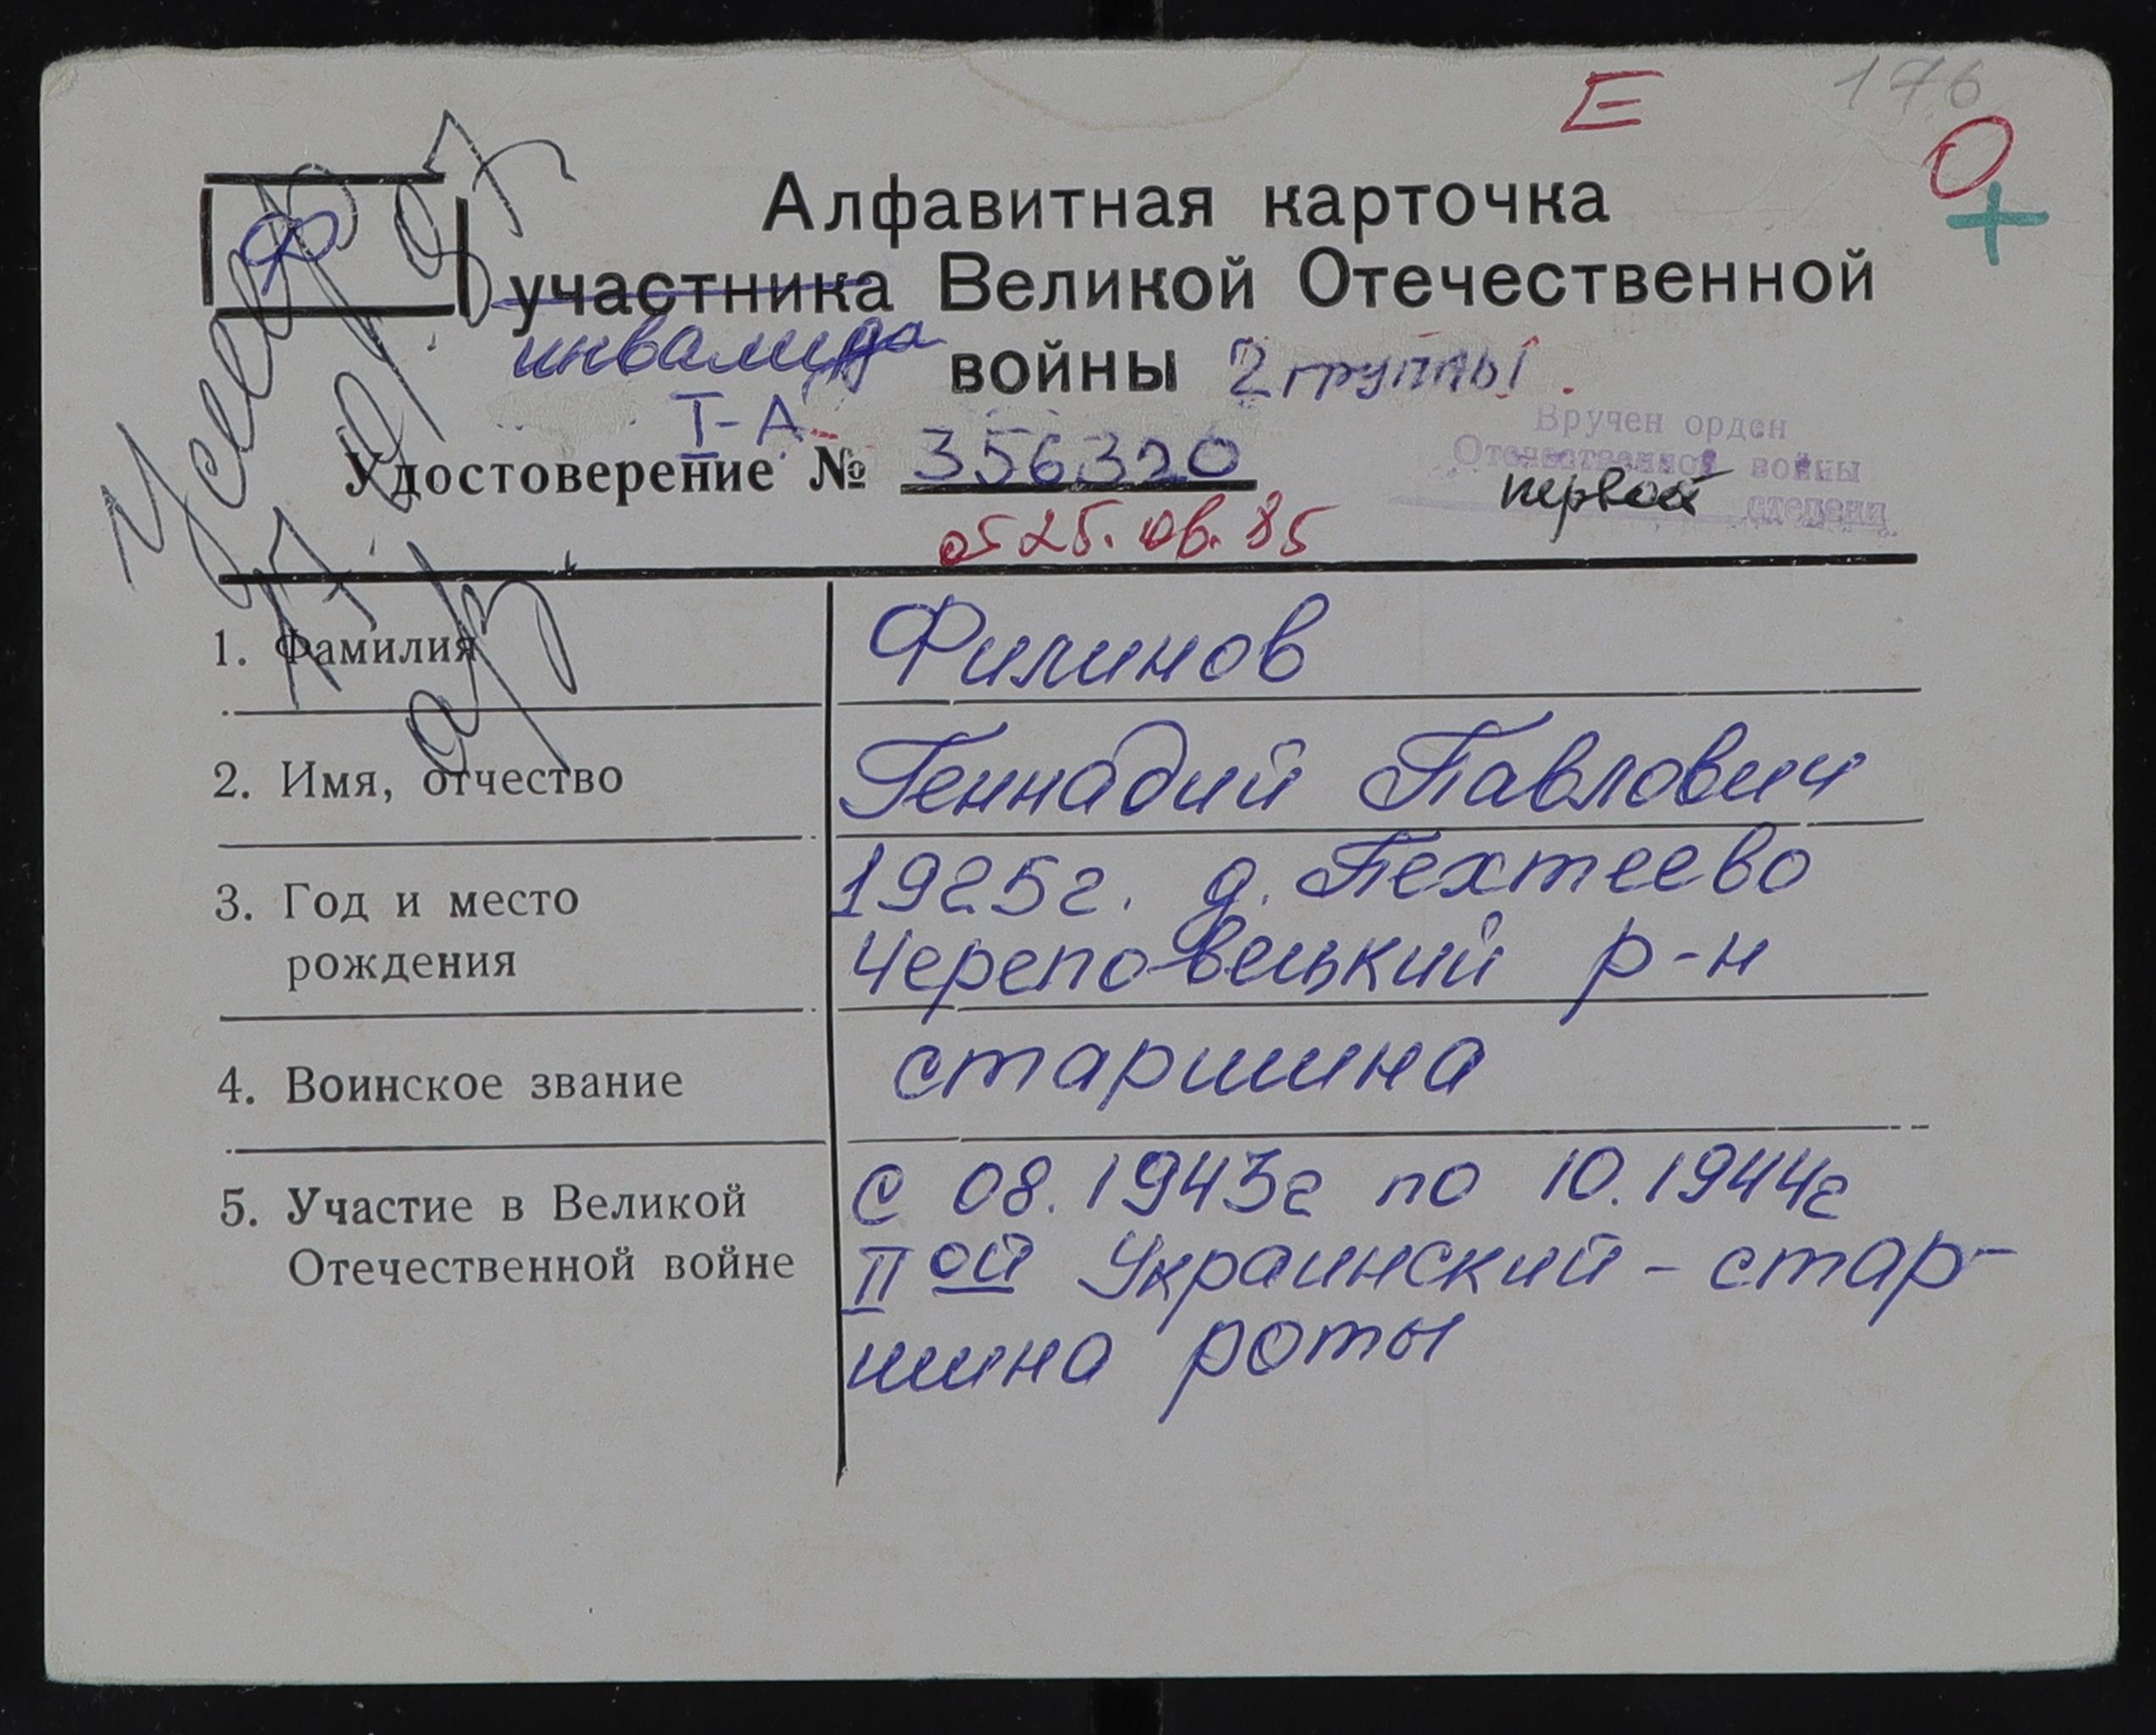 176
Е
О
+
Ф
Алфавитная карточка
участника Великой Отечественной
инвалида войны 2 группы
I-А
Удостоверение № 356320
от 25.06.85
Вручен орден
Отечественной войны
первой степени
1. Фамилия Филинов
2. Имя, отчество Геннадий Павлович
3. Год и место 1925г. д. Пехтеево
рождения Череповецький р-н
4. Воинское звание старшина
5. Участие в Великой с 08.1943г по 10.1944г
Отечественной войне II ой Украинский - стар-
шина роты